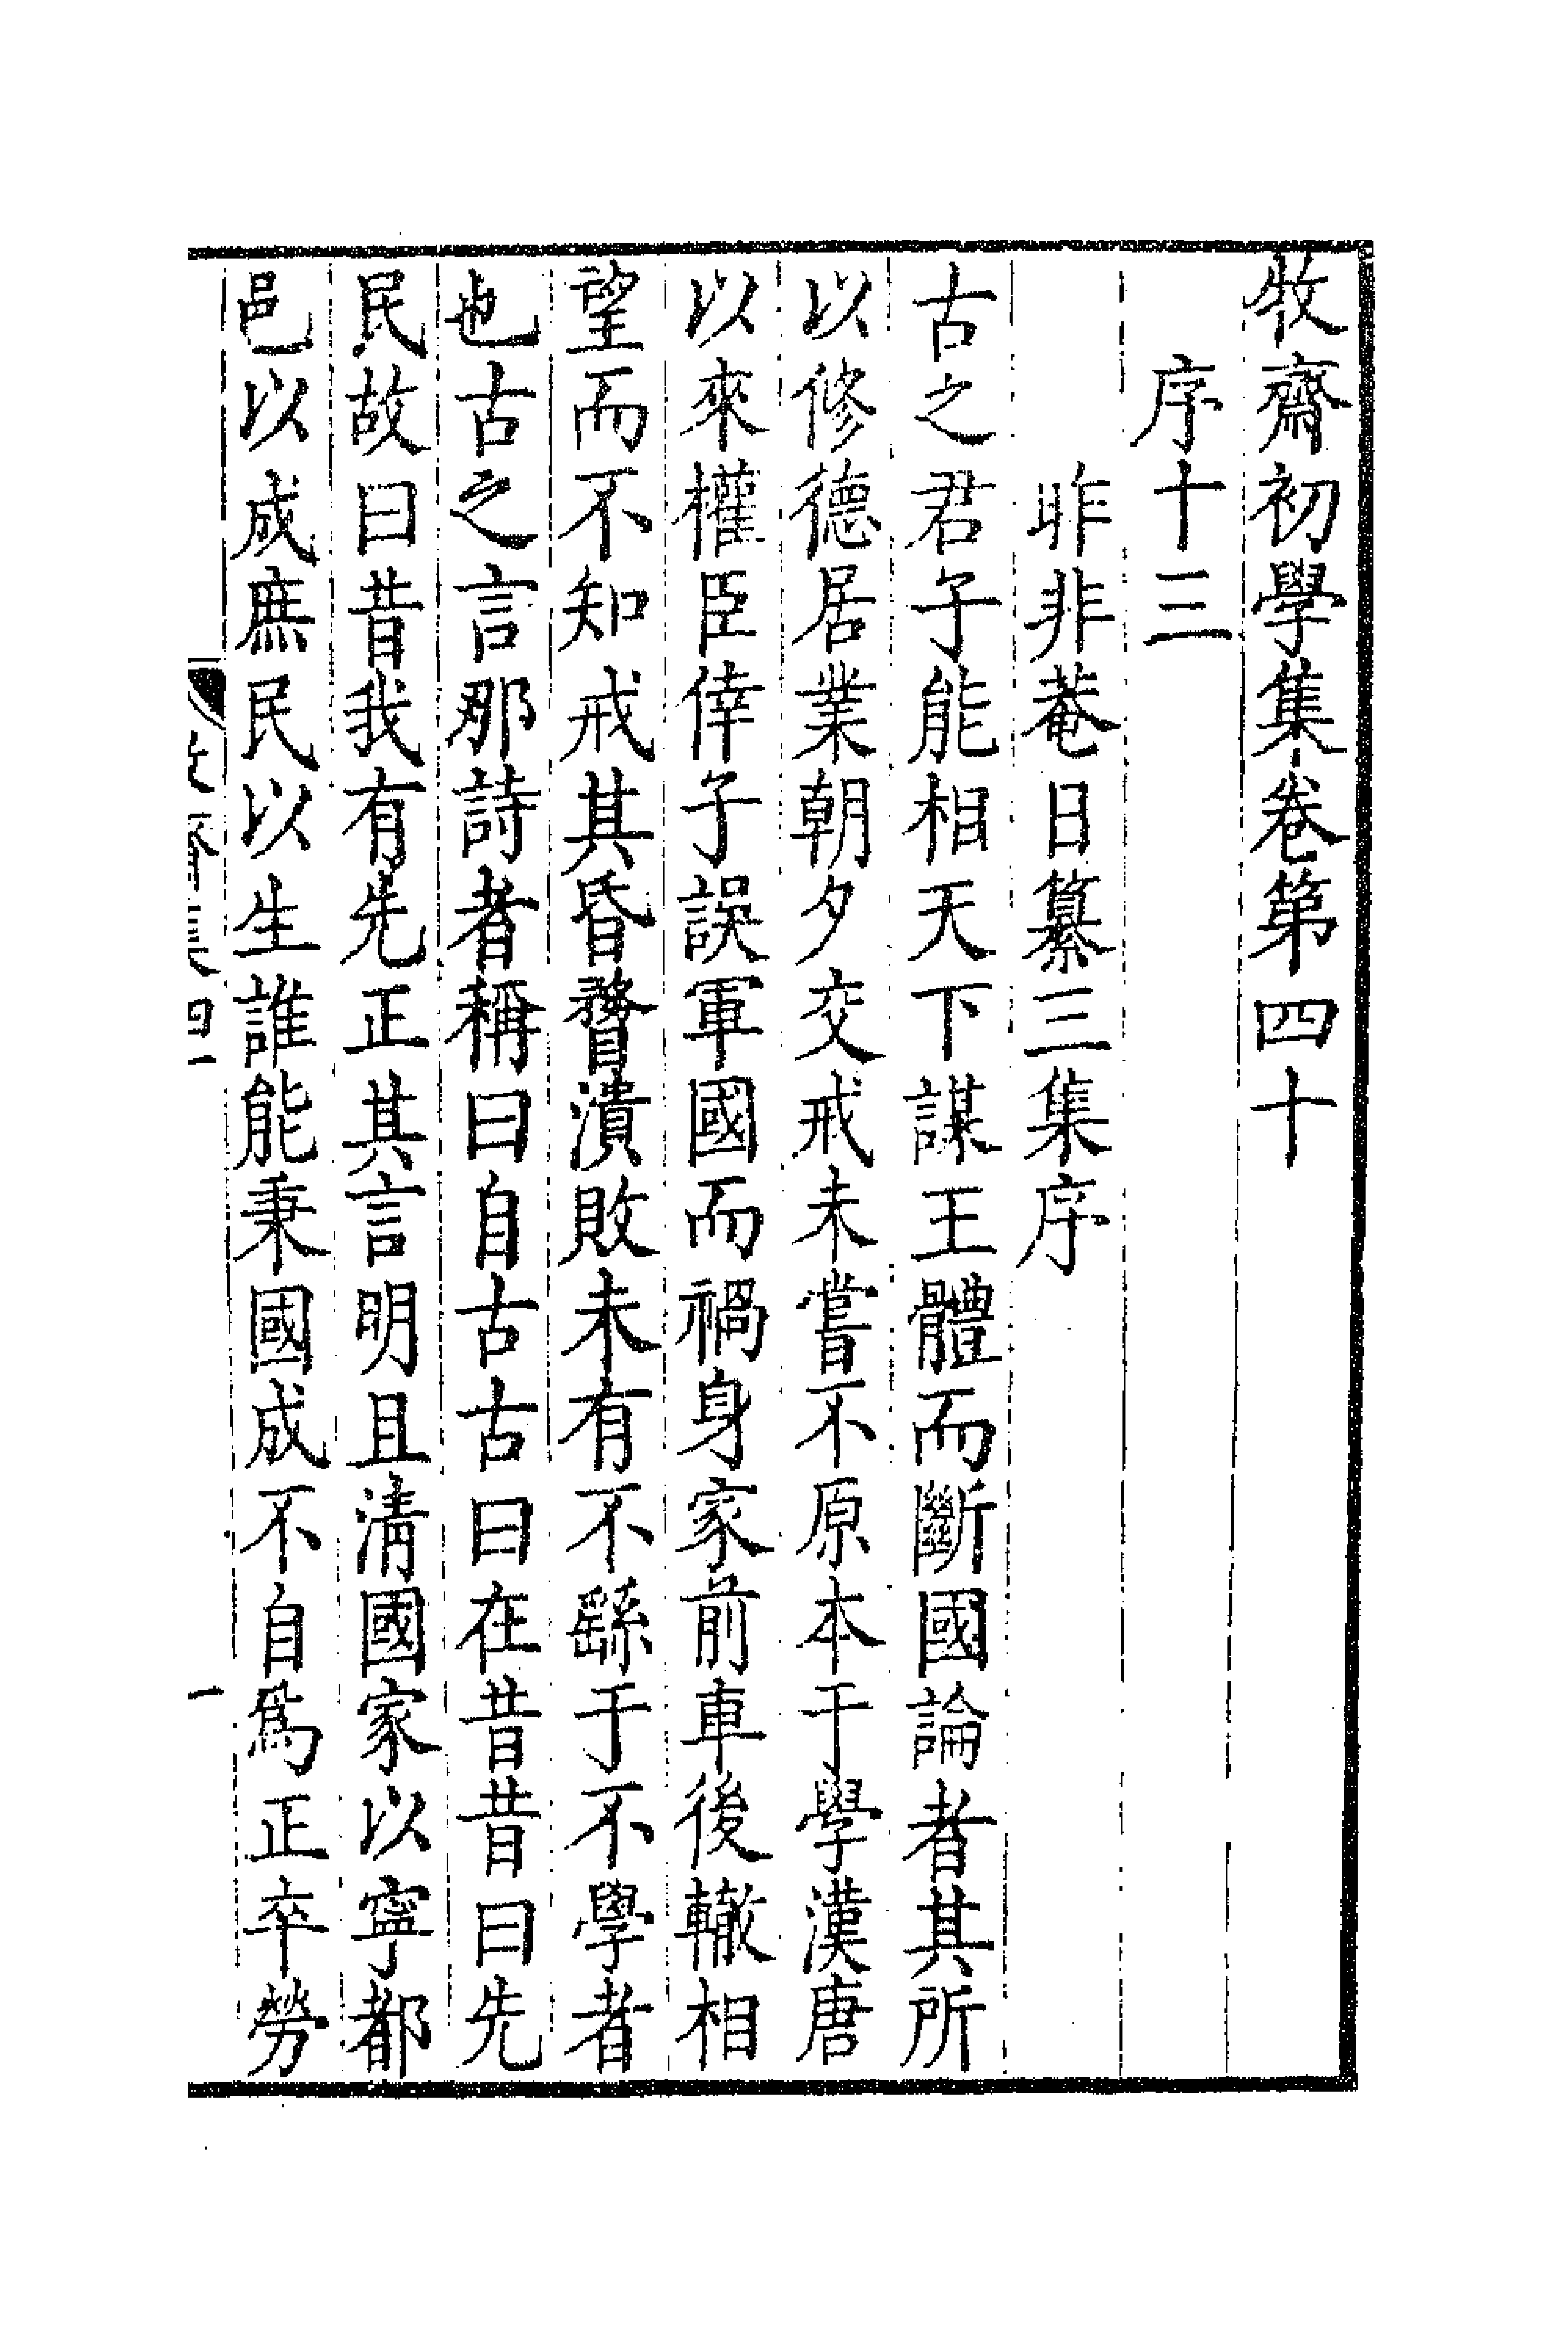 牧齋初學集卷第四十
序十三
昨非菴日纂三集序
古之君子能相天下謀王體而斷國論者其所
以修德居業朝夕交戒未嘗不原本于學漢唐
以來權臣倖子誤軍國而禍身家前車後轍相
望而不知戒其昏瞀潰敗未有不繇于不學者
也古之言那詩者稱曰自古古曰在昔昔曰先
民故曰昔我有先正其言明且清國家以寧都
邑以成庶民以生誰能秉國成不自爲正卒勞